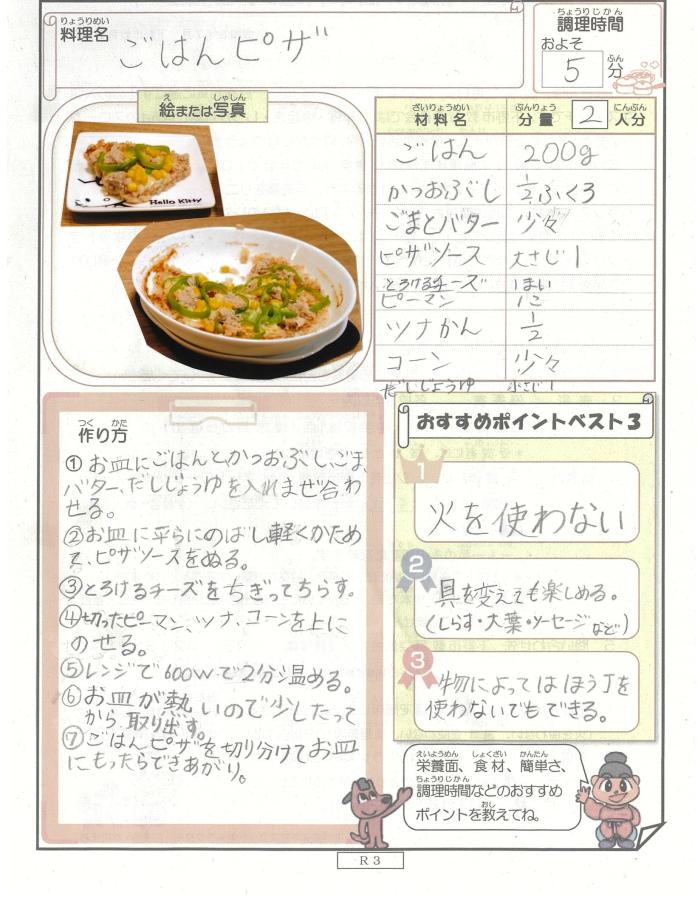 りょうりめい
料理名
ごはんピザ
ちょうりじかん
調理時間
およそ
5 分
ぷん
え しゃしん
絵または写真
Hello Kitty
ざいりょうめい ぶんりょう にんぶん
材料名 分量 2 人分
ごはん 200g
かつおぶし 1/2ふくろ
ごまとバター 少々
ピザソース 大さじ1
とろけるチーズ 1まい
ピーマン 1こ
ツナかん 1/2
コーン 少々
だしじょうゆ 小さじ1
つく かた
作り方
①お皿にごはんとかつおぶし、ごま、
バター、だしじょうゆを入れまぜ合わ
せる。
②お皿に平らにのばし軽くかため
て、ピザソースをぬる。
③とろけるチーズをちぎってちらす。
④切ったピーマン、ツナ、コーンを上に
のせる。
⑤レンジで600wで2分温める。
⑥お皿が熱いので少したって
から取り出す。
⑦ごはんピザを切り分けてお皿
にもったらできあがり。
おすすめポイントベスト3
1
火を使わない
2
具を変えても楽しめる。
(しらす・大葉・ソーセージなど)
3
物によってはほう丁を
使わないでもできる。
えいようめん しょくざい かんたん
栄養面、食材、簡単さ、
ちょうりじかん
調理時間などのおすすめ
おし
ポイントを教えてね。
R3